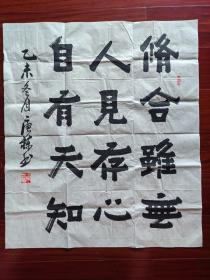 脩合雖無
人見存心
自有天知
乙未冬月